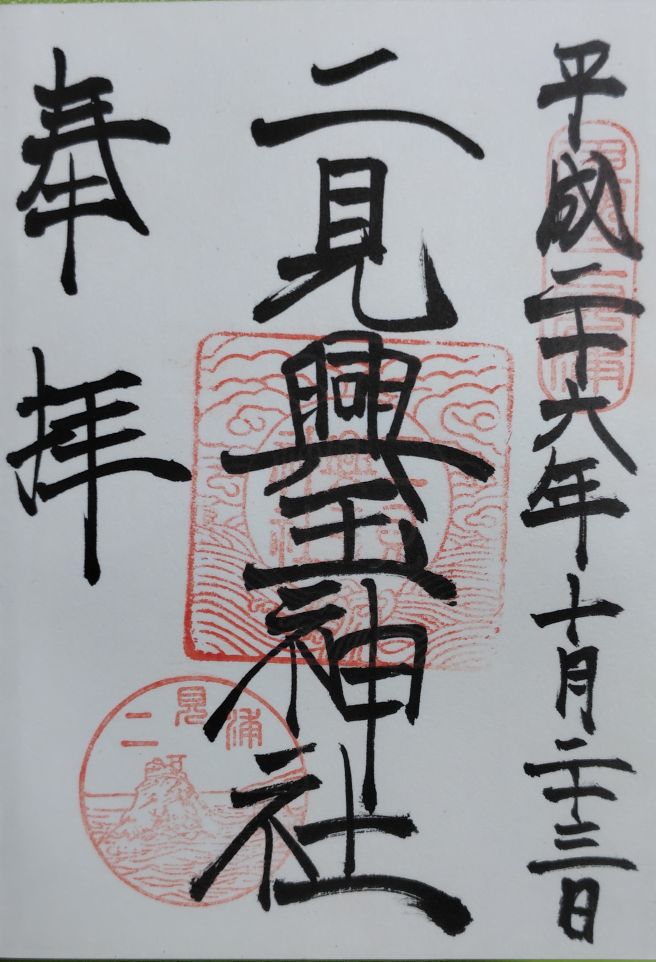 平成二十六年十月二十三日
二見興玉神社
奉拝
二見浦